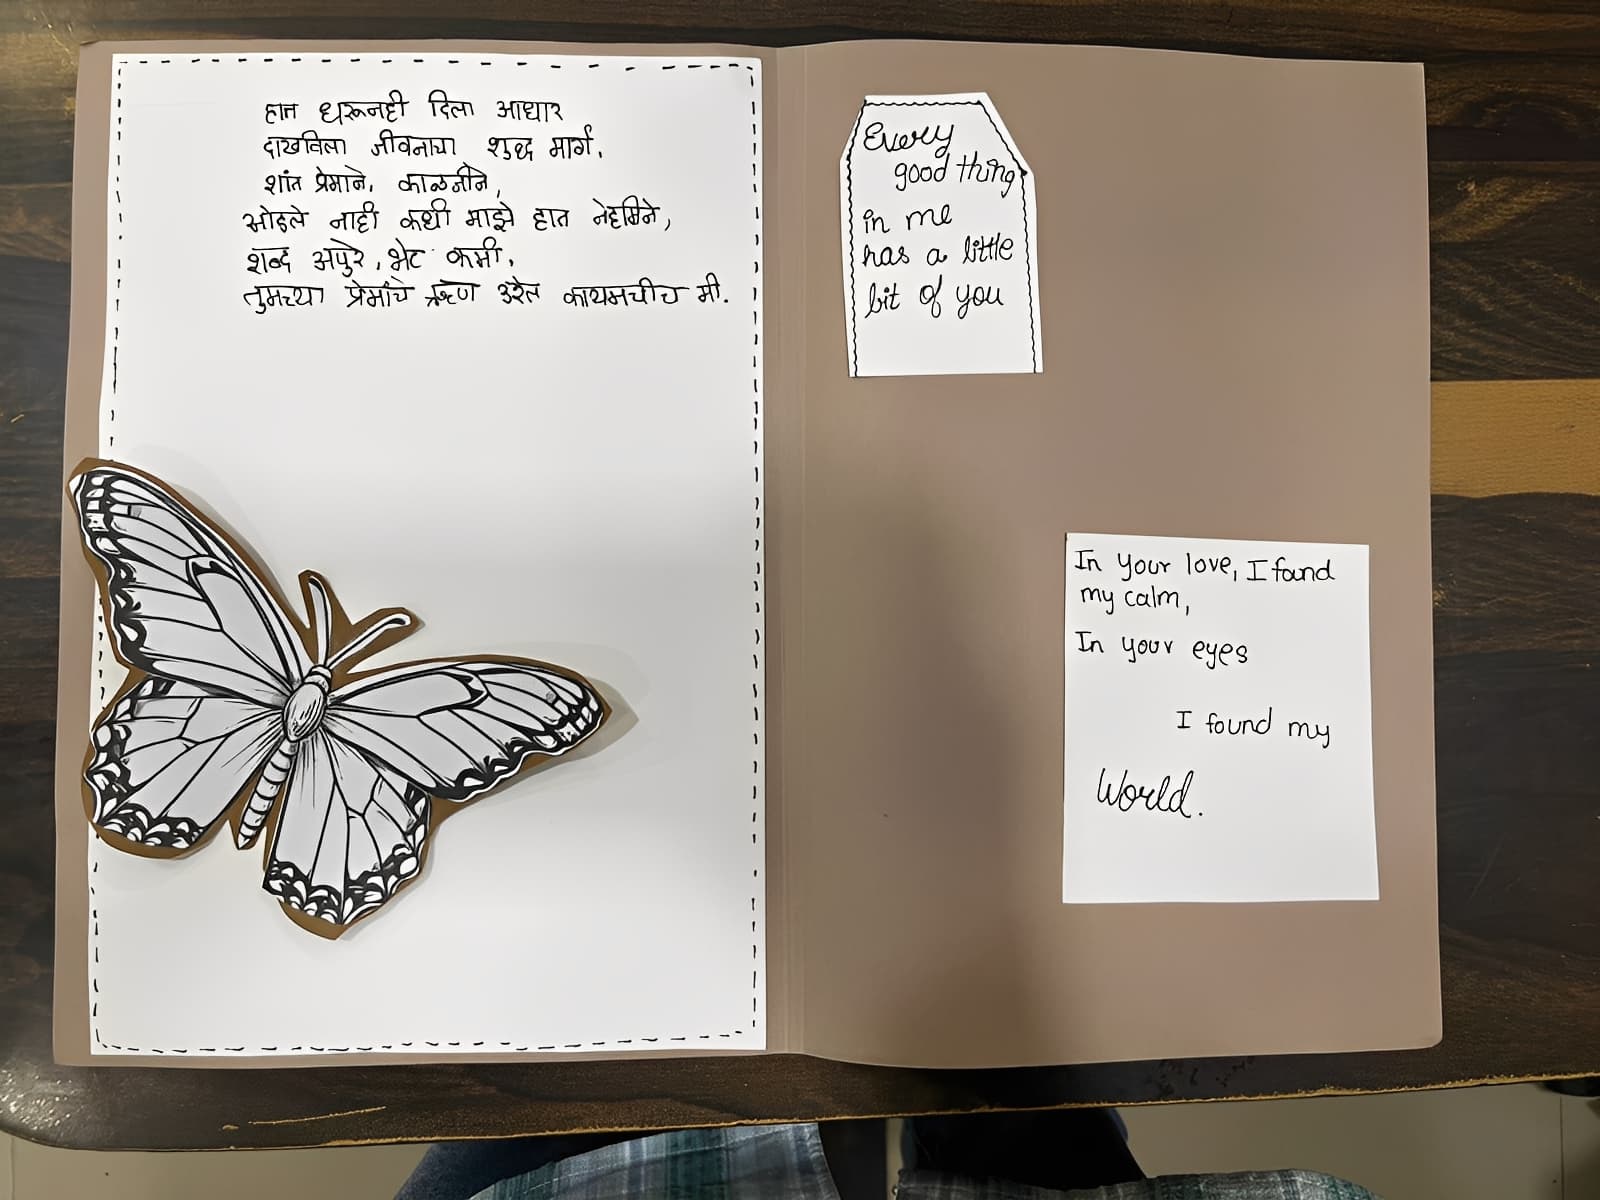 हात धरूनही दिला आधार
दाखविला जीवनाचा शुध्द मार्ग.
शांत प्रेमाने, काळजीने,
सोडले नाही कधी माझे हात नेहमिने,
शब्द अपुरे, भेट कमी,
तुमच्या प्रेमाचे ऋण उरेल कायमचीच मी.
Every
good thing
in me
has a little
bit of you
In your love, I found
my calm,
In your eyes
I found my
World.